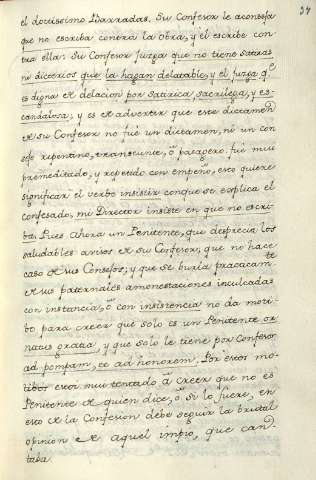 37
el doctissimo Barradas. Su Confesor le aconseja
que no escriba contra la obra, y él escribe con
tra ella: Su Confesor juzga que no tiene satiras
ni dicterios que la hagan delatable, y el juzga q.e
es digna de delacion por satirica, sacrilega, y es-
candalosa; y es de advertir que este dictamen
de su Confesor no fué un dictamen, ni un con
sejo repentino, transeunte, ô pasagero fué mui
premeditado, y repetido con empeño, esto quiere
significar el verbo insistir conque se esplica el
confesado, mi Director insiste en que no escri-
ba. Pues ahora un Penitente, que desprecia los
saludables avisos de su Confesor, que no hace
caso de sus Consejos, y que se burla practicam.te
de sus paternales amonestaciones inculcadas
con instancia, ô con insistencia no da moti-
bo para creer que solo es un Penitente or-
natus gratia, y que solo le tiene por Confesor
ad pompam, et ad honorem. Por estos mo-
tibos estoi mui tentado â creer que no es
Penitente de quien dice, ô si lo fuere, en
esto de la Confesion debe seguir la brutal
opinion de aquel impio, que can-
taba.